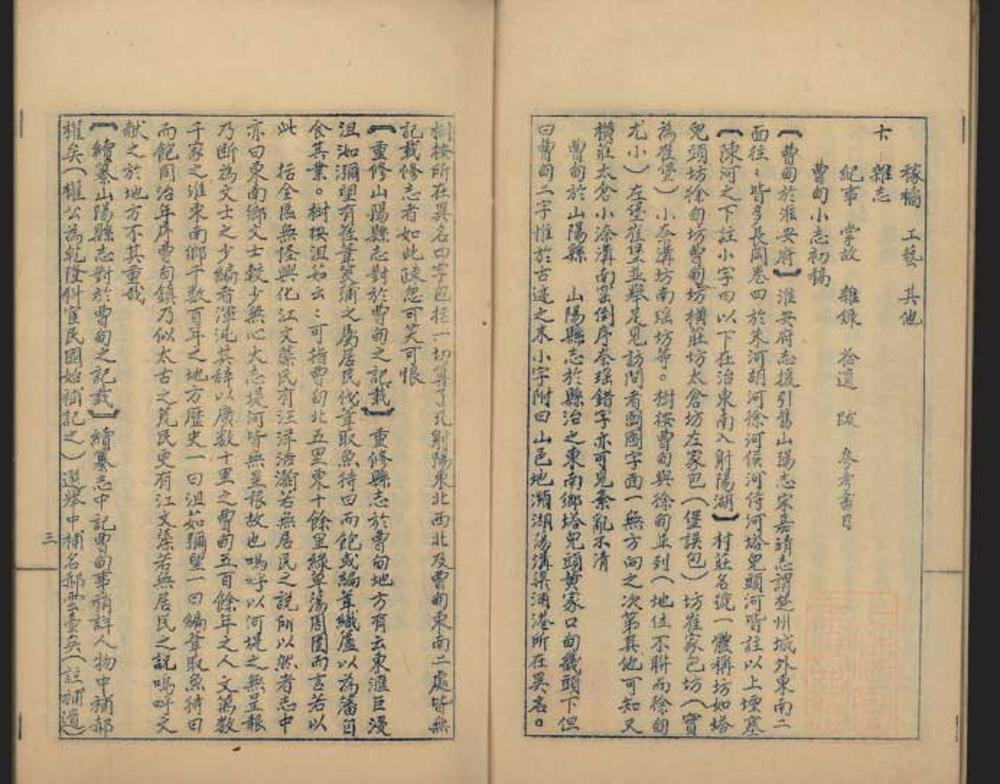 稼穡　工藝　其他
十　雜志
紀事　掌故　雜錄　拾遺　跋　參考書目
曹甸小志初稿
【曹甸於淮安府】淮安府志援引舊山陽志宋嘉靖志謂楚州城外東南二
面徃〻皆多長岡卷四於朱河胡河徐河侯河侍河塔兒頭河皆註以上堙塞
【陳河之下註小字曰以下在治東南入射陽湖】村莊名號一體稱坊如塔
兒頭坊徐甸坊曹甸坊橫莊坊太倉坊左家包（堡誤包）坊崔家包坊（實
為崔堡）小奈溝坊南瑶坊等。樹按曹甸與徐甸並列（地位不聨而徐甸
尤小）左堡崔堡並舉足見訪問者圇圇字面一無方向之次第其他可知又
橫莊太倉小涂溝南窰倒序奈瑶錯字亦可見紊亂不清
曹甸於山陽縣　山陽縣志於縣治之東南鄉塔兒頭黄家口甸籤頭下但
曰曹甸二字惟於古迹之末小字附曰山邑地瀕湖蕩溝渠浦港所在異名。
樹按所在異名四字包括一切尊了孔射陽東北西北及曹甸東南二處皆無
記載修志者如此陳忽可笑可恨
【重修山陽縣志對於曹甸之記載】重修縣志於曹甸地方有云東滙巨浸
沮洳瀰望有萑葦茭蒲之屬居民伐葦取魚待曰而飽或編葦織蘆以為藩
食其業。樹按沮洳云：可指曹甸北五里東十餘里綠草蕩周圍而言若以
此　括全區無怪興化江文藻民有汪洋浩瀚若無居民之説所以然者志中
亦曰東南鄉文士較少無心大志堤河皆無呈報故也嗚呼以河堤之無呈報
乃断為文士之少編者渾沌其辞以廣数十里之曹甸五百餘年之人文萬数
千家之淮東南鄉千数百年之地方歷史一曰沮洳瀰望一曰編葦取魚待曰
而飽同治年序曹甸鎮乃似太古之荒民更有江文藻若無居民之説嗚呼文
献之於地方不其重哉
【續纂山陽縣志對於曹甸之記載】續纂志中記曹甸事稍詳人物中補郝
權矣（權公為乾隆科宦民國始補記之）選舉中補名郝雲臺矣（註補遺）
三